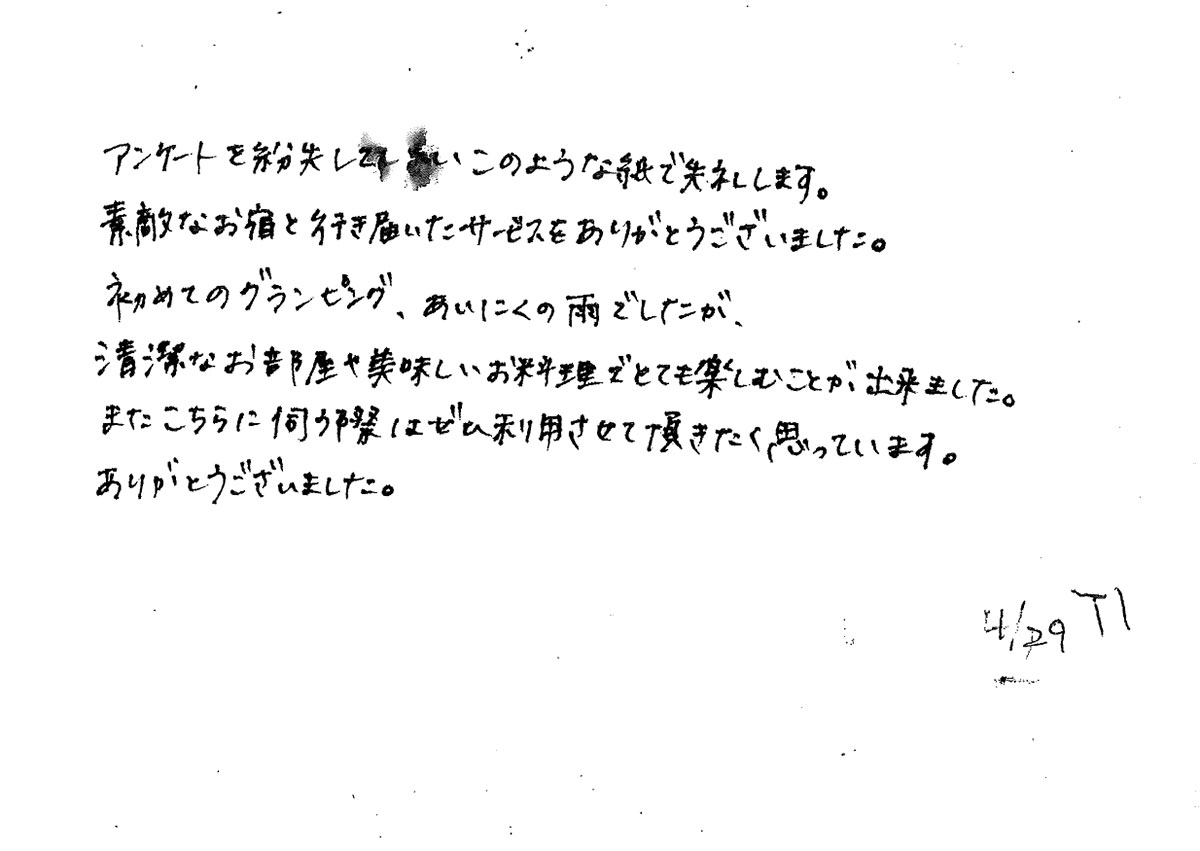 アンケートを紛失してしまいこのような紙で失礼します。
素敵なお宿と行き届いたサービスをありがとうございました。
初めてのグランピング、あいにくの雨でしたが、
清潔なお部屋や美味しいお料理でとても楽しむことが出来ました。
またこちらに伺う際はぜひ利用させて頂きたく思っています。
ありがとうございました。
4/29 T1